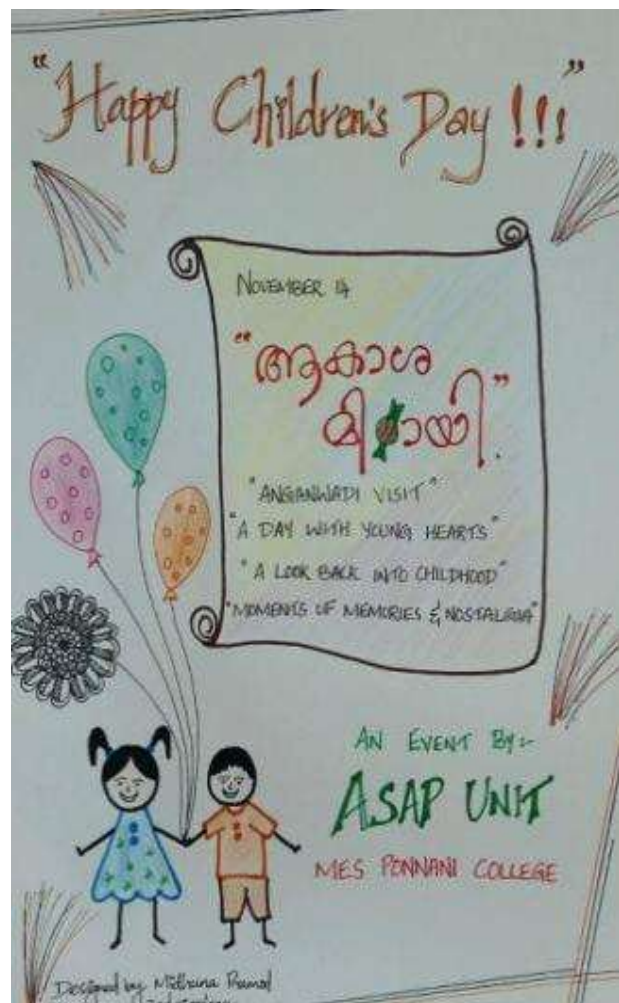 "Happy Children's Day !!!"
NOVEMBER 14
"ആകാശ
മിഠായി".
"ANGANWADI VISIT"
"A DAY WITH YOUNG HEARTS"
"A LOOK BACK INTO CHILDHOOD"
"MOMENTS OF MEMORIES & NOSTALGIA"
AN EVENT BY:-
ASAP UNIT
MES PONNANI COLLEGE
Designed by Midhuna Pramod